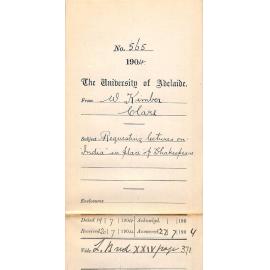 No. 565
1904
The University of Adelaide.
From W Kimber
Clare
Subject Requesting lectures on
"India" in place of Shakespeare
Enclosure
Dated 19 / 7 / 1904 Acknowl. / / 190
Received 20 / 7 / 1904 Answered 22 / 7 / 1904
File L. Bnd XXIV page 371